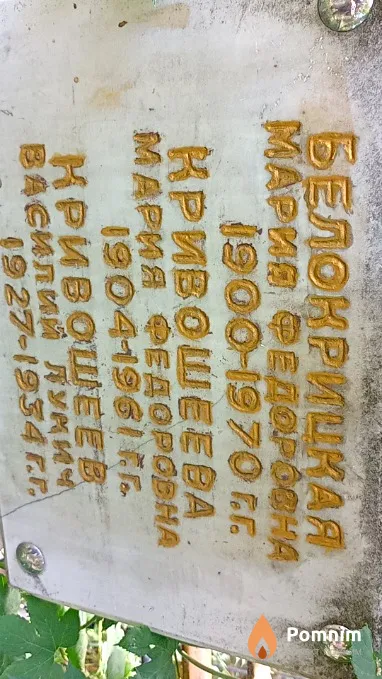 БЕЛОКРИЦКАЯ
МАРИЯ ФЕДОРОВНА
1900-1970 г.г.
КРИВОШЕЕВА
МАРИЯ ФЕДОРОВНА
1904-1961 г.г.
КРИВОШЕЕВ
ВАСИЛИЙ ЛУКИЧ
1927-1934 г.г.
Pomnim